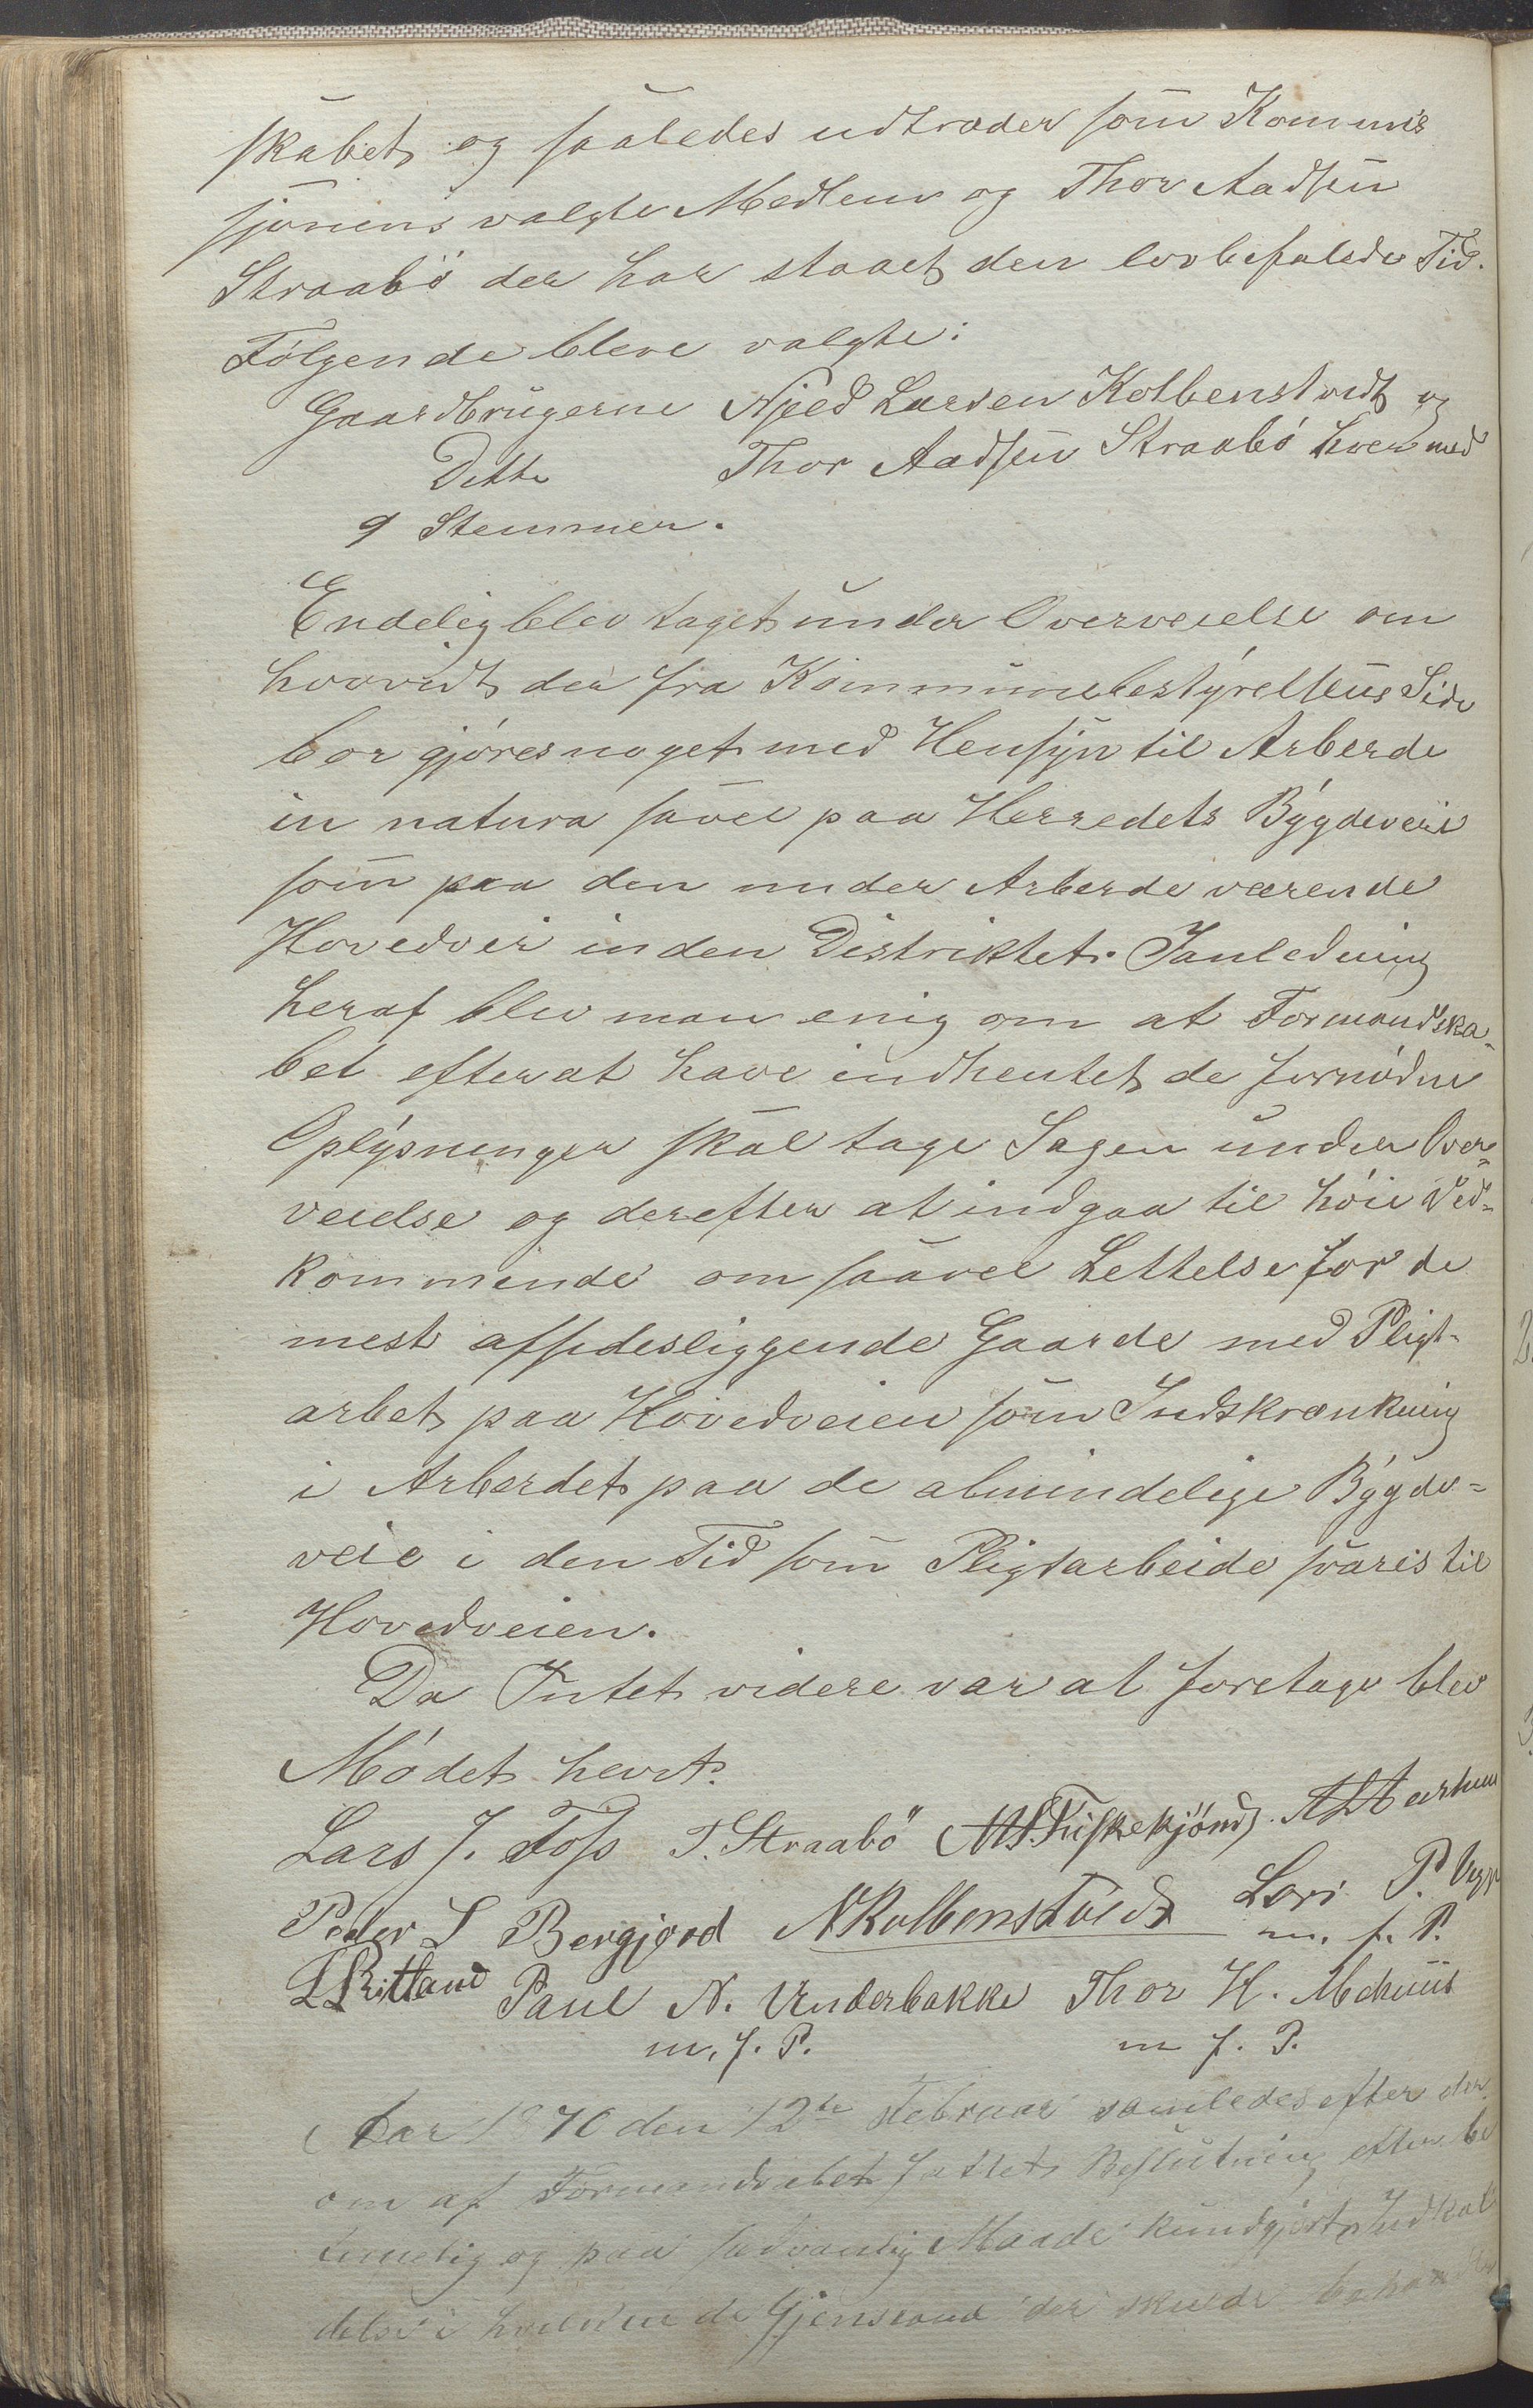 skabet og saaledes udtræder som Kommis
sjonens valgte Medlem og Thor Aadsen
Straabø der har staaet den lovbefalede Tid.
Følgende bleve valgte:
Gaardbrugerne Njed Larsen Kolbenstvedt og
Ditto Thor Aadsen Straabø hver med
9 Stemmer.
Endelig blev taget under Overveielse om
hvorvidt der fra Kommunebestyrelsens Side
bør gjøres noget med Hensyn til Arbeide
in natura saavel paa Herredets Bygdeveie
som paa den under Arbeide værende
Hovedvei inden Distriktet. Ianledning
heraf blev man enig om at Formandska-
bet efterat have indhentet de fornødne
Oplysninger skal tage Sagen under Over-
veielse og derefter at indgaa til høie Ved-
kommende om saavel Lettelse for de
mest affidesliggende Gaarde med Pligt-
arbet paa Hovedveien som Indskrænkning
i Arbeidet paa de almindelige Bygde-
veie i den Tid som Pligtarbeide svares til
Hovedveien.
Da Intet videre var at foretage blev
Mødet hevet.
Lars J. Foss T. Straabø Fiskekjønd.
Peder S Bergjord NKolbenstvedt P.
m. f. P.
LRitland Paul N. Underbakke Thor H.
m. f. P. m f. P.
Aar 1870 den 12te Februar samledes efter der
om af Formandskabet fattet Beslutning efter be
timelig og paa sædvanlig Maade kundgjort Indkal
delse i hvilken de Gjenstand der skulde behandles